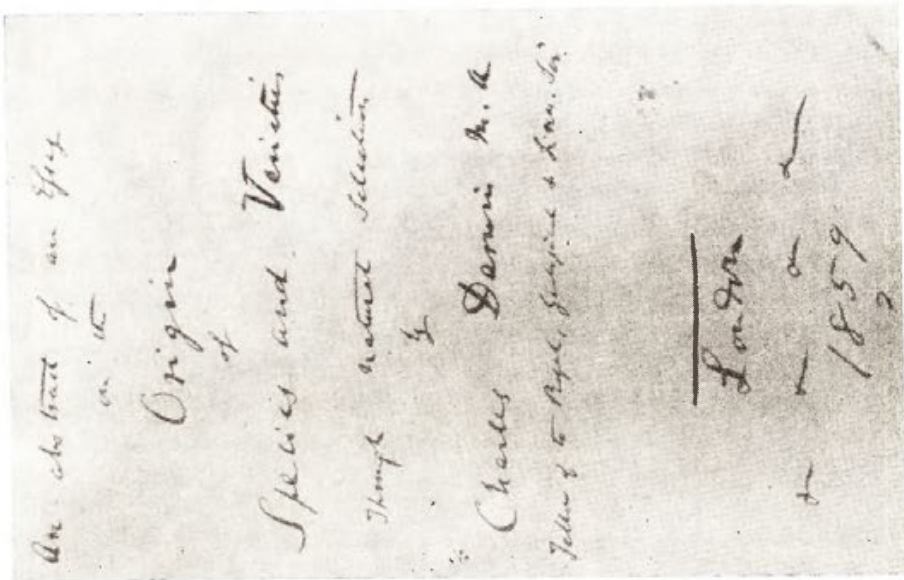 An abstract of an Essay
on the
Origin
of
Species and Varieties
Through Natural Selection
by
Charles Darwin M.A
Fellow of the Royal, Geological & Linn. Soc.
London
1859